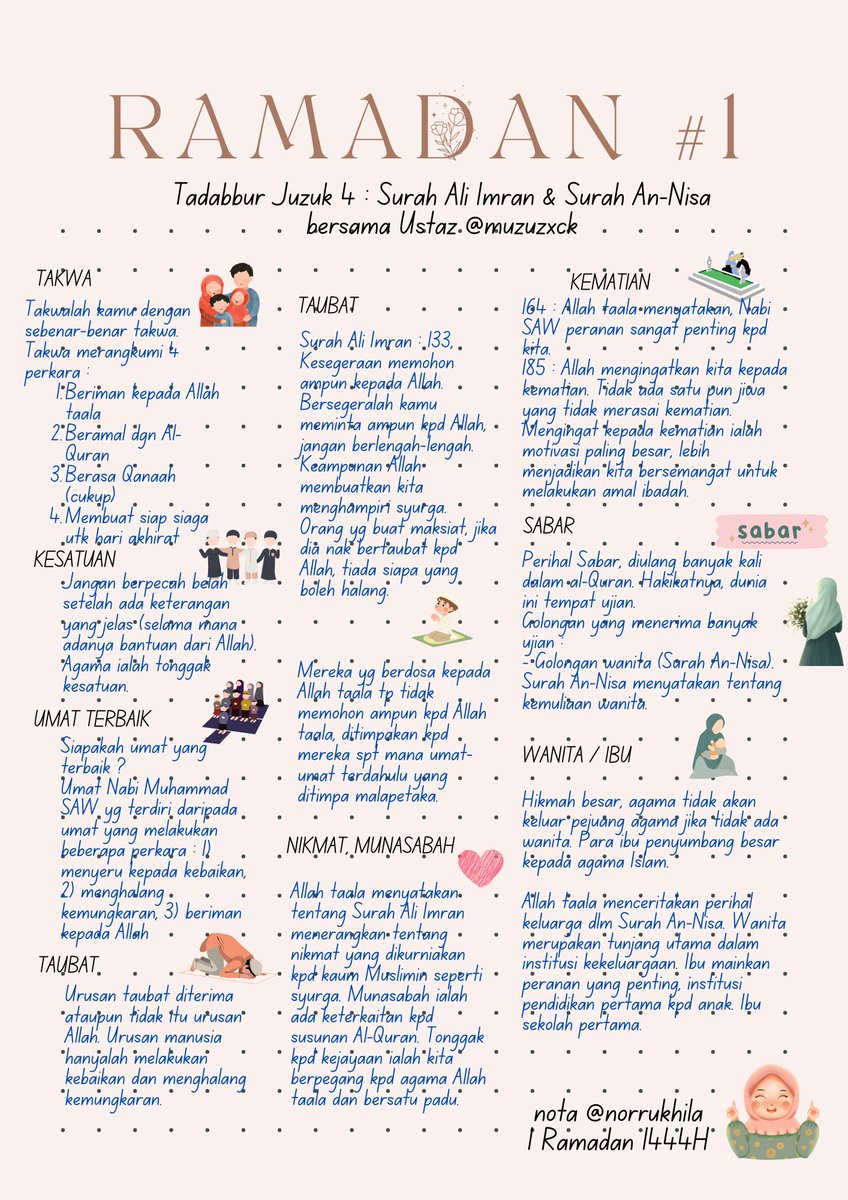 RAMADAN #1
Tadabbur Juzuk 4 : Surah Ali Imran & Surah An-Nisa
bersama Ustaz @muzuzxck
TAKWA
Takwalah kamu dengan
sebenar-benar takwa.
Takwa merangkumi 4
perkara :
1. Beriman kepada Allah
taala
2. Beramal dgn Al-
Quran
3. Berasa Qanaah
(cukup)
4. Membuat siap siaga
utk hari akhirat
KESATUAN
Jangan berpecah belah
setelah ada keterangan
yang jelas (selama mana
adanya bantuan dari Allah).
Agama ialah tonggak
kesatuan.
UMAT TERBAIK
Siapakah umat yang
terbaik ?
Umat Nabi Muhammad
SAW yg terdiri daripada
umat yang melakukan
beberapa perkara : 1)
menyeru kepada kebaikan,
2) menghalang
kemungkaran, 3) beriman
kepada Allah
TAUBAT
Urusan taubat diterima
ataupun tidak itu urusan
Allah. Urusan manusia
hanyalah melakukan
kebaikan dan menghalang
kemungkaran.
TAUBAT
Surah Ali Imran : 133,
Kesegeraan memohon
ampun kepada Allah.
Bersegeralah kamu
meminta ampun kpd Allah,
jangan berlengah-lengah.
Keampunan Allah
membuatkan kita
menghampiri syurga.
Orang yg buat maksiat, jika
dia nak bertaubat kpd
Allah, tiada siapa yang
boleh halang.
Mereka yg berdosa kepada
Allah taala tp tidak
memohon ampun kpd Allah
taala, ditimpakan kpd
mereka spt mana umat-
umat terdahulu yang
ditimpa malapetaka.
NIKMAT, MUNASABAH
Allah taala menyatakan
tentang Surah Ali Imran
menerangkan tentang
nikmat yang dikurniakan
kpd kaum Muslimin seperti
syurga. Munasabah ialah
ada keterkaitan kpd
susunan Al-Quran. Tonggak
kpd kejayaan ialah kita
berpegang kpd agama Allah
taala dan bersatu padu.
KEMATIAN
164 : Allah taala menyatakan, Nabi
SAW peranan sangat penting kpd
kita.
185 : Allah mengingatkan kita kepada
kematian. Tidak ada satu pun jiwa
yang tidak merasai kematian.
Mengingat kepada kematian ialah
motivasi paling besar, lebih
menjadikan kita bersemangat untuk
melakukan amal ibadah.
SABAR
sabar
Perihal Sabar, diulang banyak kali
dalam al-Quran. Hakikatnya, dunia
ini tempat ujian.
Golongan yang menerima banyak
ujian :
- Golongan wanita (Surah An-Nisa).
Surah An-Nisa menyatakan tentang
kemuliaan wanita.
WANITA / IBU
Hikmah besar, agama tidak akan
keluar pejuang agama jika tidak ada
wanita. Para ibu penyumbang besar
kepada agama Islam.
Allah taala menceritakan perihal
keluarga dlm Surah An-Nisa. Wanita
merupakan tunjang utama dalam
institusi kekeluargaan. Ibu mainkan
peranan yang penting, institusi
pendidikan pertama kpd anak. Ibu
sekolah pertama.
nota @norrukhila
1 Ramadan 1444H